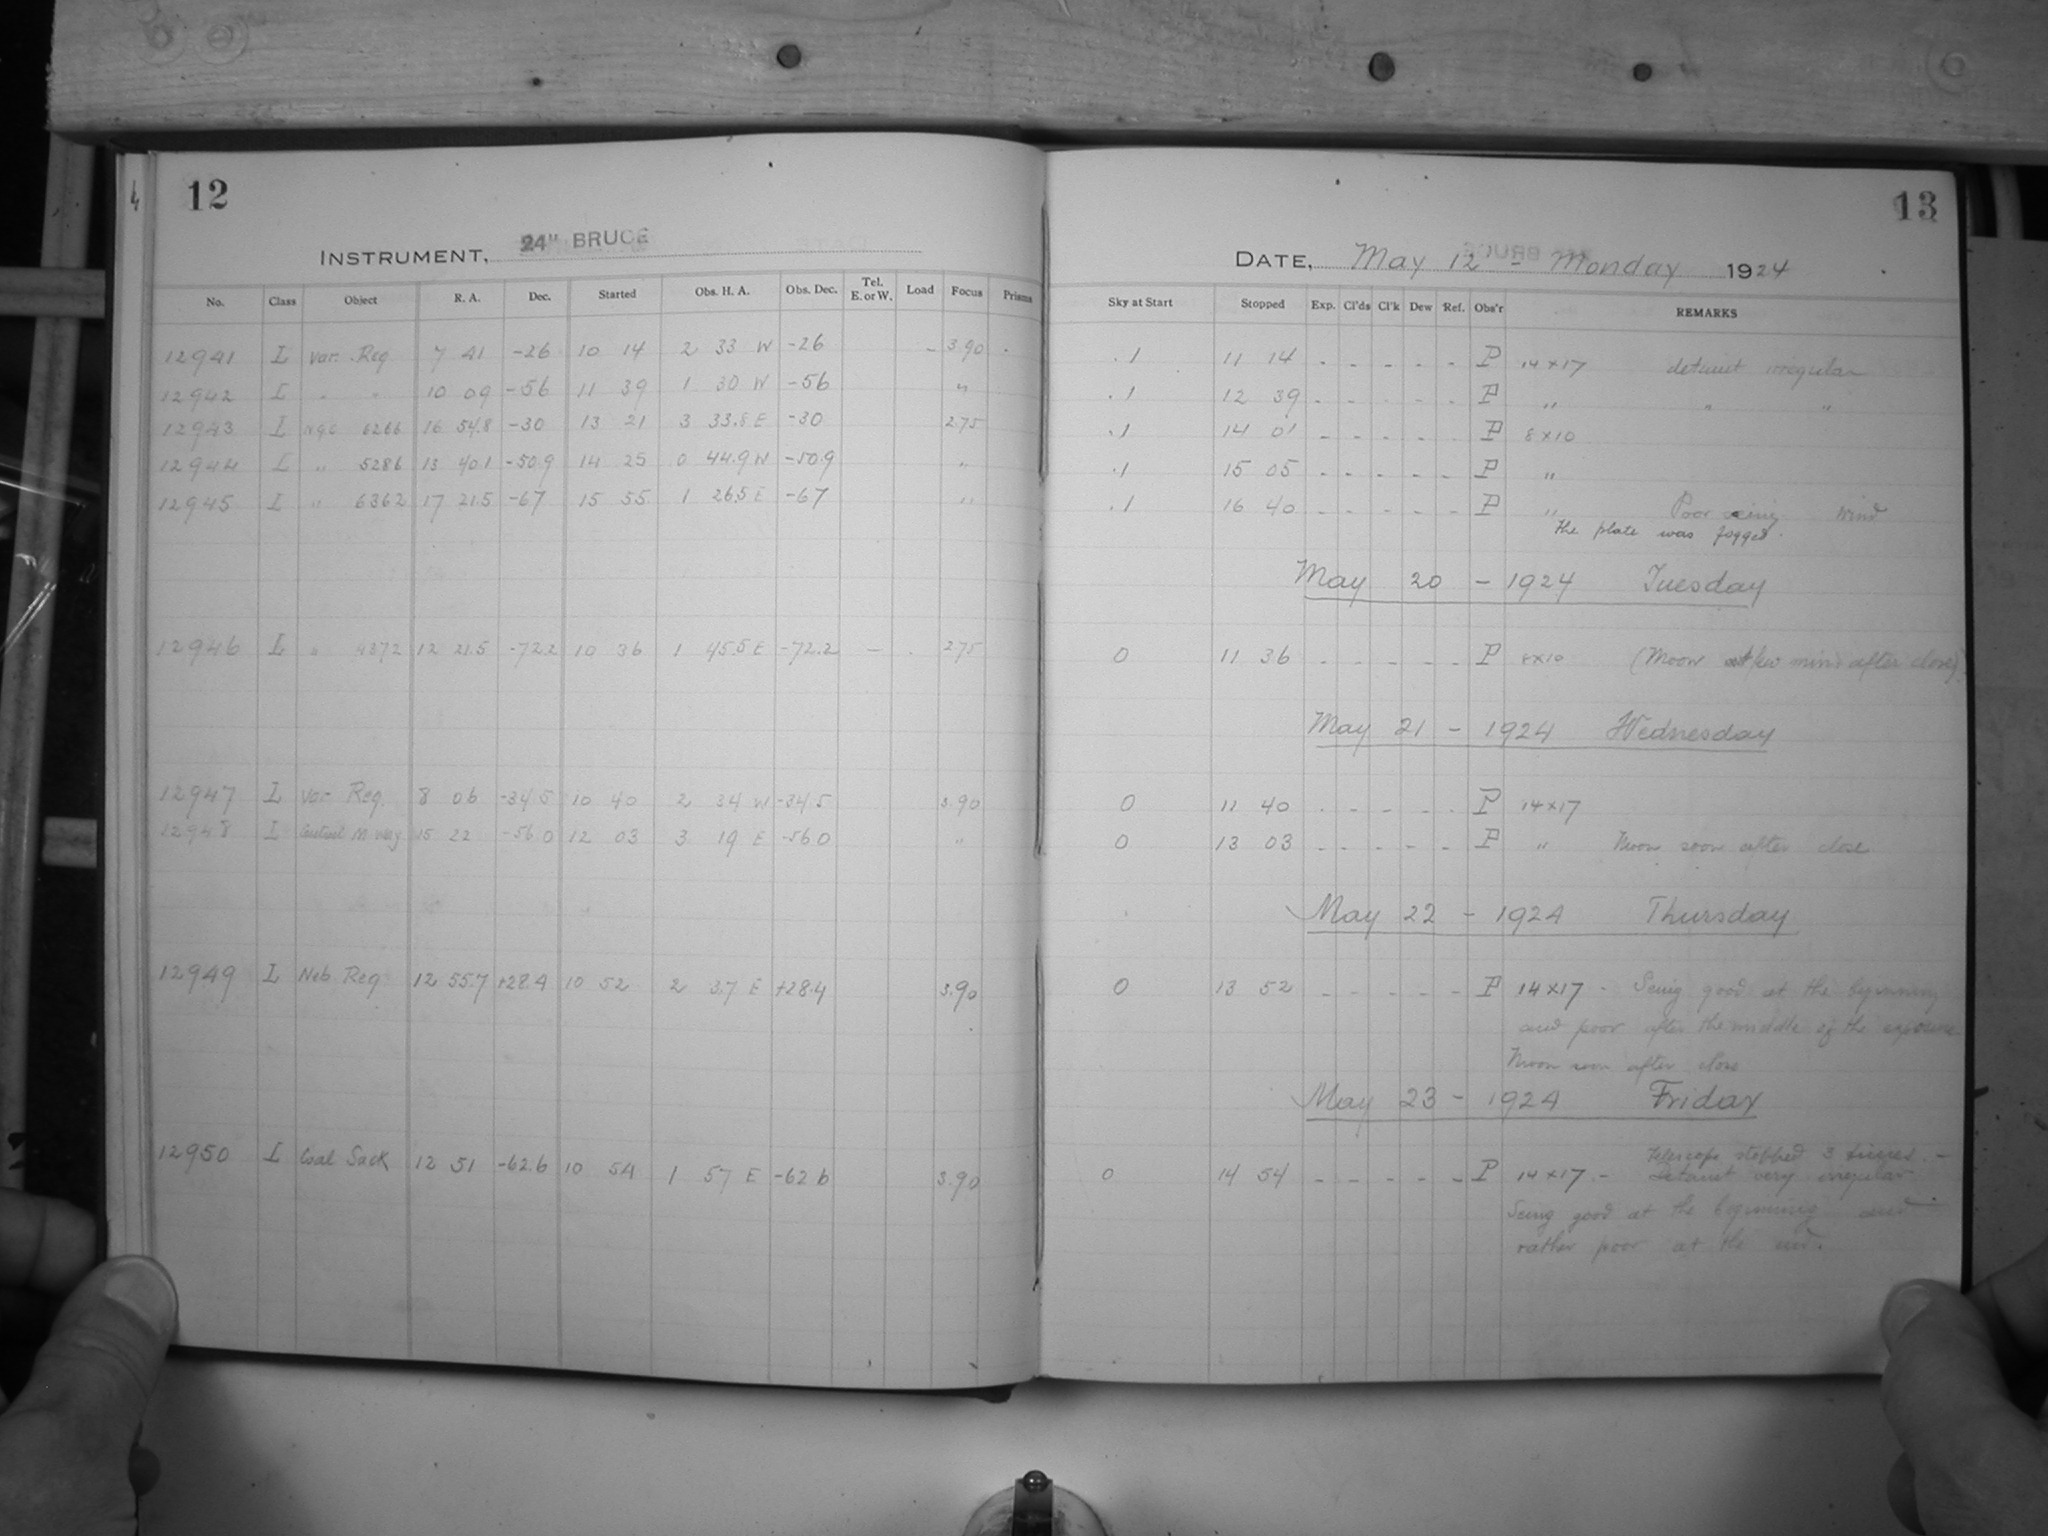 12
INSTRUMENT, 24" BRUCE
No. Class Object R. A. Dec. Started Obs. H. A. Obs. Dec. Tel. E. or W. Load Focus Prisms
12941 I Var. Reg 7 41 -26 10 14 2 33 W -26 3.90
12942 I " " 10 09 -56 11 39 1 30 W -56 "
12943 I NGC 6266 16 54.8 -30 13 21 3 33.8 E -30 2.75
12944 I " 5286 13 40.1 -50.9 14 25 0 44.9 W -50.9 "
12945 I " 6362 17 21.5 -67 15 55 1 26.5 E -67 "
12946 I " 4372 12 21.5 -72.2 10 36 1 45.5 E -72.2 — 2.75
12947 I Var Reg. 8 06 -34.5 10 40 2 34 W -34.5 3.90
12948 I M way 15 22 -56.0 12 03 3 19 E -56.0 "
12949 I Neb Reg 12 55.7 +28.4 10 52 2 3.7 E +28.4 3.90
12950 I Coal Sack 12 51 -62.6 10 54 1 57 E -62.6 3.90
13
DATE, May 12 - Monday 1924
Sky at Start Stopped Exp. Cl'ds Cl'k Dew Ref. Obs'r REMARKS
.1 11 14 - - - - - P 14x17 irregular
.1 12 39 - - - - - P " " "
.1 14 01 - - - - - P 8x10
.1 15 05 - - - - - P "
.1 16 40 - - - - - P " Poor seing Wind
The plate was fogged.
May 20 - 1924 Tuesday
0 11 36 - - - - - P 8x10 (Moon few min after close)
May 21 - 1924 Wednesday
0 11 40 - - - - - P 14x17
0 13 03 - - - - - P " Moon soon after close
May 22 - 1924 Thursday
0 13 52 - - - - - P 14x17 - Seing good at the beginning
and poor after the middle of the exposure
Moon soon after close
May 23 - 1924 Friday
Telescope stopped 3 times. -
0 14 54 - - - - - P 14x17 - very irregular
Seing good at the beginning and
rather poor at the end.